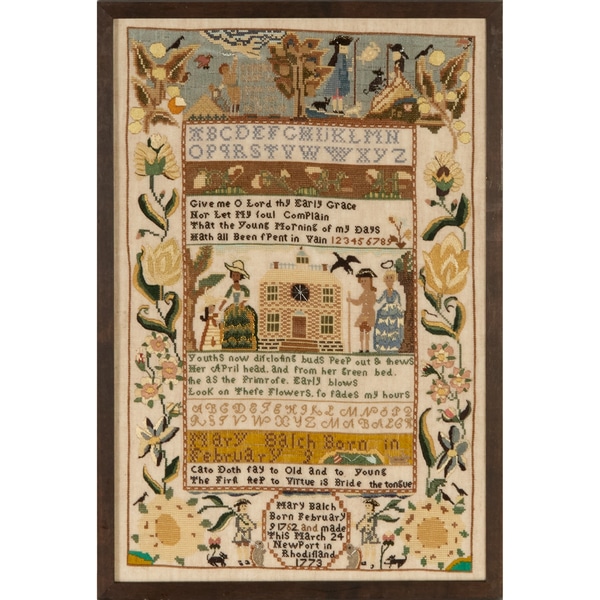 ABCDEFGHIJKLMN
OPQRSTVWXYZ
Give me O Lord thy Early Grace
Nor Let My ſoul Complain
That the Young Morning of my Days
Hath all Been ſPent in Vain 123456789
Youths now diſcloſing buds Peep out & shews
Her April head, and from her Green bed.
he as the Primroſe. Early blows
Look on Theſe Flowers. ſo fades my hours
Mary Balch Born in
February 9
Cato Doth ſay to Old and to Young
The Firſt ſteP to Virtue is Bride the tongue
Mary Balch
Born February
9 1762 and made
This March 24
NewPort in
Rhodiſland
1773